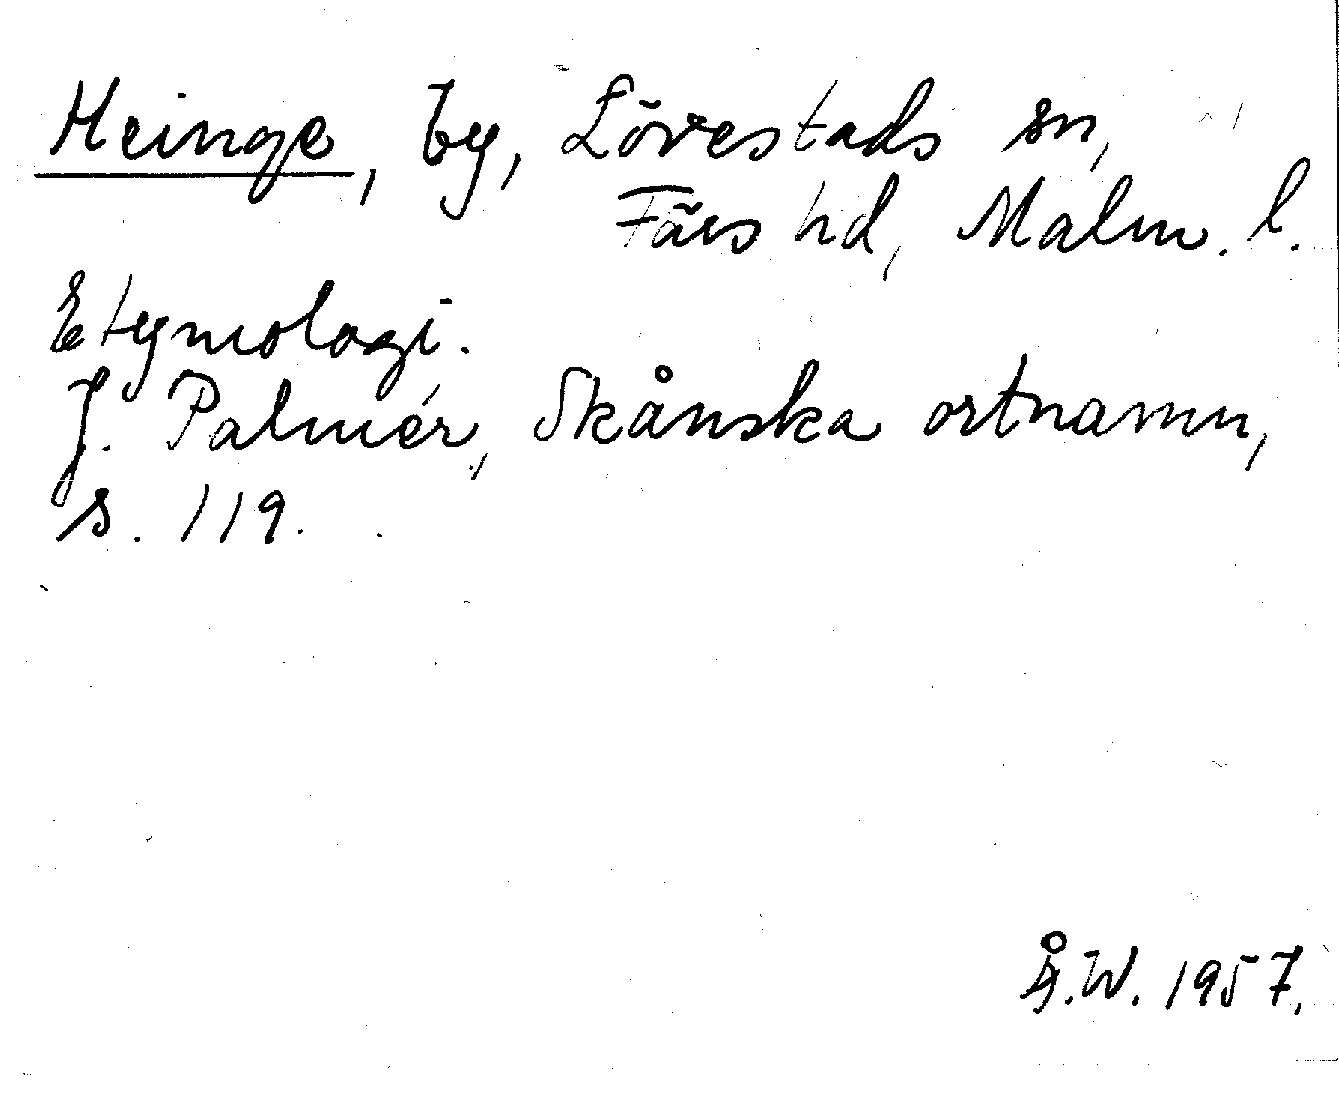 Heinge, by, Lövestads sn,
Färs hd, Malm. l.
Etymologi.
J. Palmér, Skånska ortnamn,
s. 119.
Å.W. 1957.